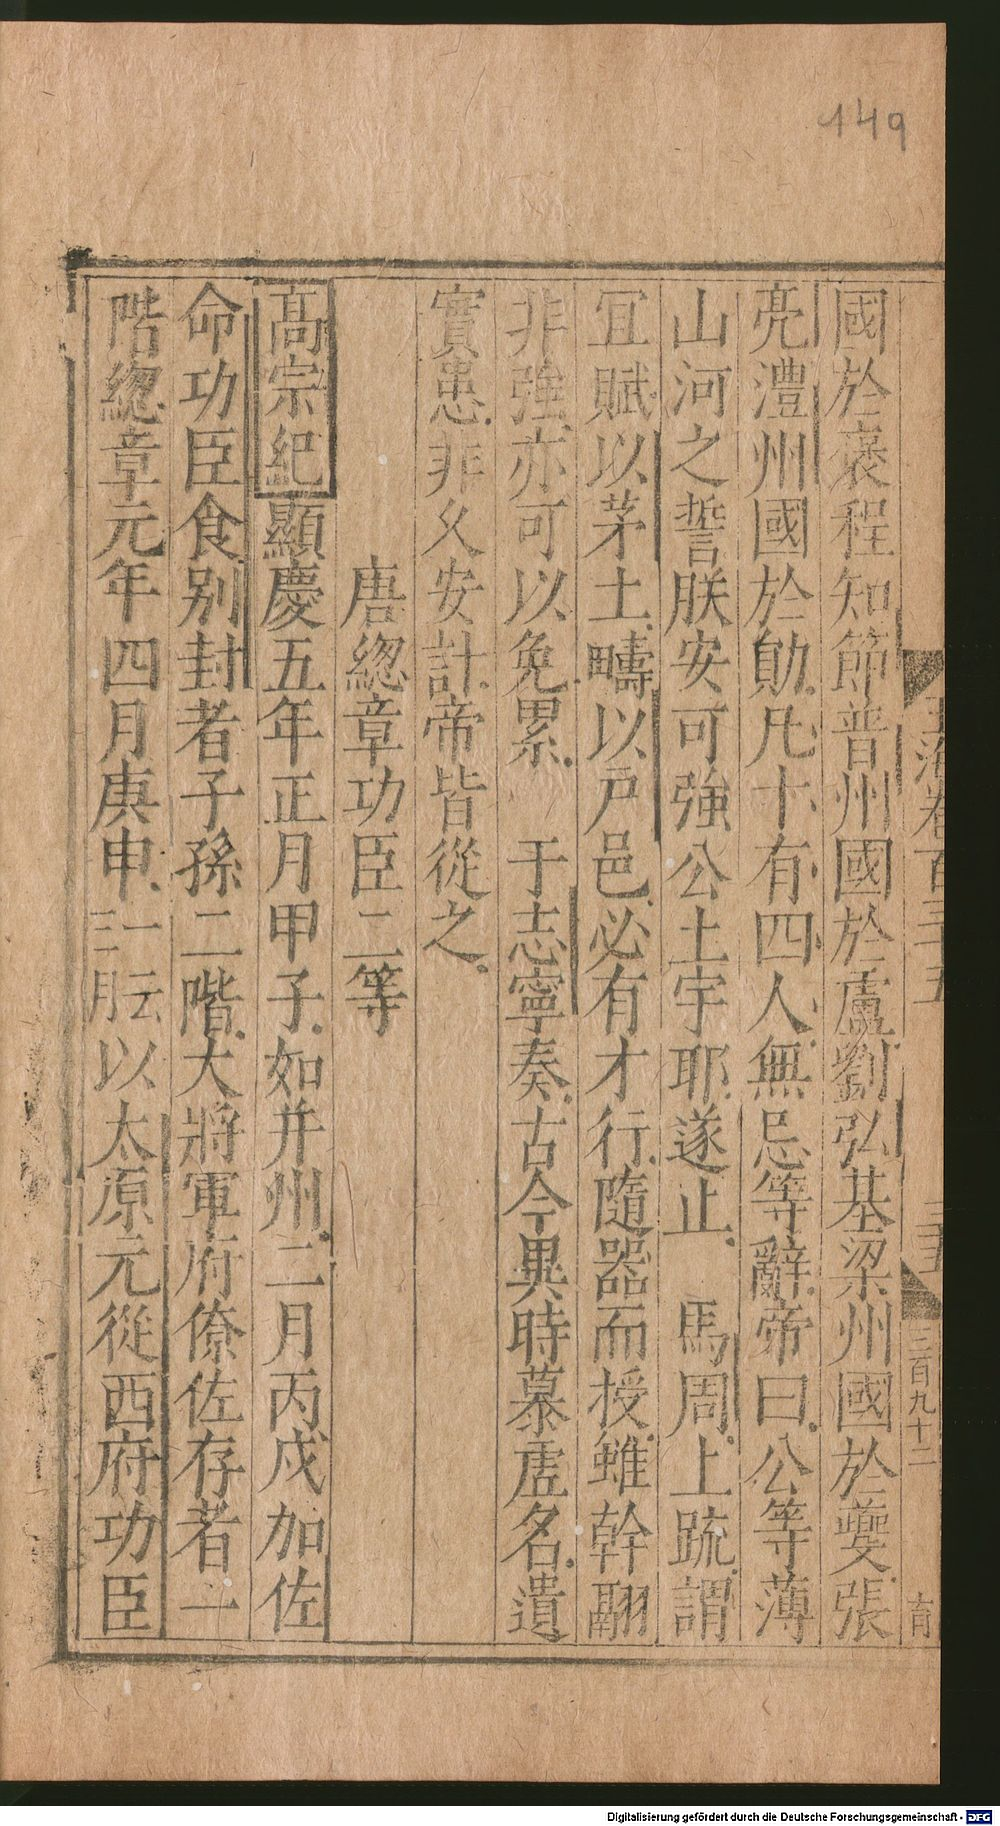 149
玉海卷百三十五
三五
三百九十二
國於褒程知節普州國於盧劉弘基梁州國於夔張
亮澧州國於勛凡十有四人無忌等辭帝曰公等薄
山河之誓朕安可強公土宇耶遂止 馬周上疏謂
宜賦以茅土疇以戸邑必有才行隨器而授雖幹翮
非強亦可以免累 于志寧奏古今異時慕虛名遺
實患非久安計帝皆從之
唐緫章功臣二等
髙宗紀顯慶五年正月甲子如并州二月丙戍加佐
命功臣食别封者子孫二階大將軍府僚佐存者一
階緫章元年四月庚申 以太原元從西府功臣
Digitalisierung gefördert durch die Deutsche Forschungsgemeinschaft - DFG